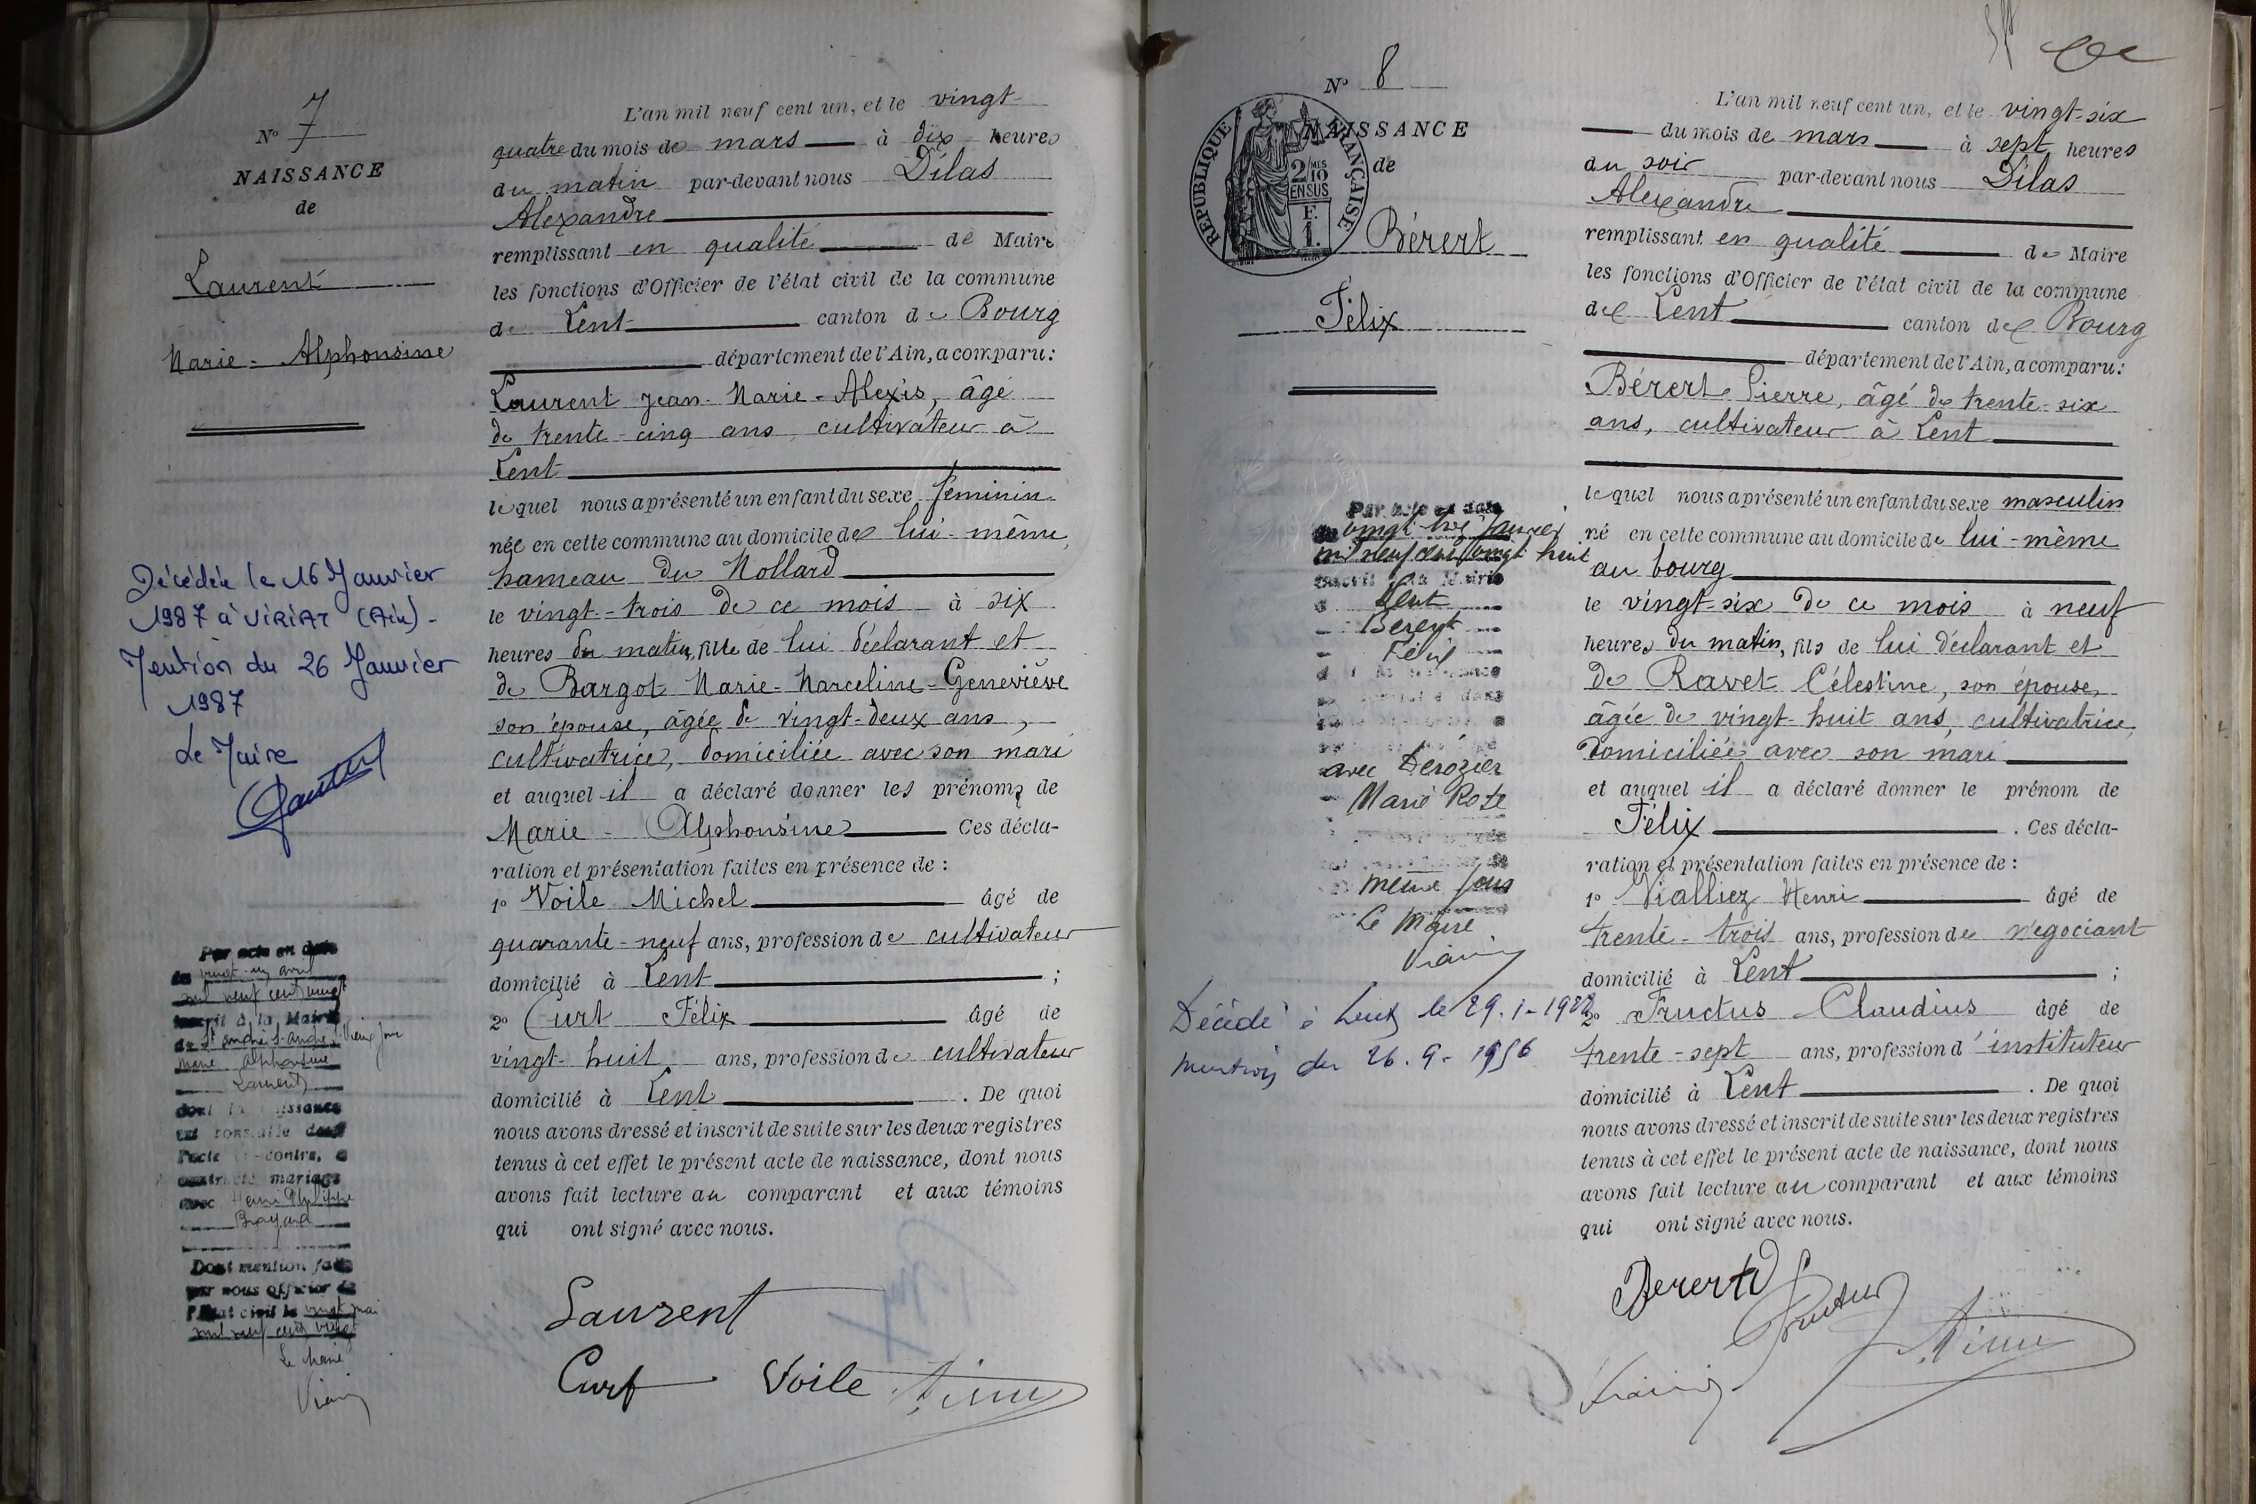 N° 7
NAISSANCE
de
Laurent
Marie - Alphonsine
Décédée le 16 Janvier
1987 à VIRIAT (Ain) -
Mention du 26 Janvier
1987
Le Maire
Par acte en date
du vingt-un avril
mil neuf cent vingt
inscrit à la Mairie
de St André s. Vieux Jonc
Marie Alphonsine
Laurent
dont la naissance
est constatée dans
l'acte ci-contre, a
contracté mariage
avec Henri Philippe
Brayard
Dont mention faite
par nous officier de
l'Etat civil le vingt mai
mil neuf cent vingt
Le Maire
L'an mil neuf cent un, et le vingt-
quatre du mois de mars à dix heures
du matin par-devant nous Dilas
Alexandre
remplissant en qualité de Maire
les fonctions d'Officier de l'état civil de la commune
de Lent canton de Bourg
département de l'Ain, a comparu :
Laurent Jean-Marie-Alexis, âgé
de trente-cinq ans, cultivateur à
Lent
lequel nous a présenté un enfant du sexe féminin
née en cette commune au domicile de lui-même,
hameau du Mollard
le vingt-trois de ce mois à six
heures du matin, fille de lui déclarant et
de Bargot Marie-Marceline-Geneviève
son épouse, âgée de vingt-deux ans,
cultivatrice, domiciliée avec son mari
et auquel il a déclaré donner les prénoms de
Marie - Alphonsine Ces décla-
ration et présentation faites en présence de :
1° Voile Michel âgé de
quarante-neuf ans, profession de cultivateur
domicilié à Lent ;
2° Curt Félix âgé de
vingt-huit ans, profession de cultivateur
domicilié à Lent . De quoi
nous avons dressé et inscrit de suite sur les deux registres
tenus à cet effet le présent acte de naissance, dont nous
avons fait lecture au comparant et aux témoins
qui ont signé avec nous.
Laurent
Curt Voile
N° 8
NAISSANCE
de
RÉPUBLIQUE FRANÇAISE
2/10 EN SUS
F. 1.
Bérert
Félix
Par acte en date
du vingt trois Janvier
mil neuf cent vingt huit
inscrit à la Mairie
Lent
Berert
Félix
avec Derozier
Marie Rose
même jour
Le Maire
Décédé à Lent le 29.1-1922
Mention du 26.9.1956
L'an mil neuf cent un, et le vingt-six
du mois de mars à sept heures
du soir par-devant nous Dilas
Alexandre
remplissant en qualité de Maire
les fonctions d'Officier de l'état civil de la commune
de Lent canton de Bourg
département de l'Ain, a comparu :
Bérert Pierre, âgé de trente-six
ans, cultivateur à Lent
lequel nous a présenté un enfant du sexe masculin
né en cette commune au domicile de lui-même
au bourg
le vingt-six de ce mois à neuf
heures du matin, fils de lui déclarant et
de Ravet Célestine, son épouse,
âgée de vingt-huit ans, cultivatrice,
domiciliée avec son mari
et auquel il a déclaré donner le prénom de
Félix . Ces décla-
ration et présentation faites en présence de :
1° Vialliez Henri âgé de
trente-trois ans, profession de négociant
domicilié à Lent ;
2° Fructus Claudius âgé de
trente-sept ans, profession d'instituteur
domicilié à Lent . De quoi
nous avons dressé et inscrit de suite sur les deux registres
tenus à cet effet le présent acte de naissance, dont nous
avons fait lecture au comparant et aux témoins
qui ont signé avec nous.
Berert
Fructus